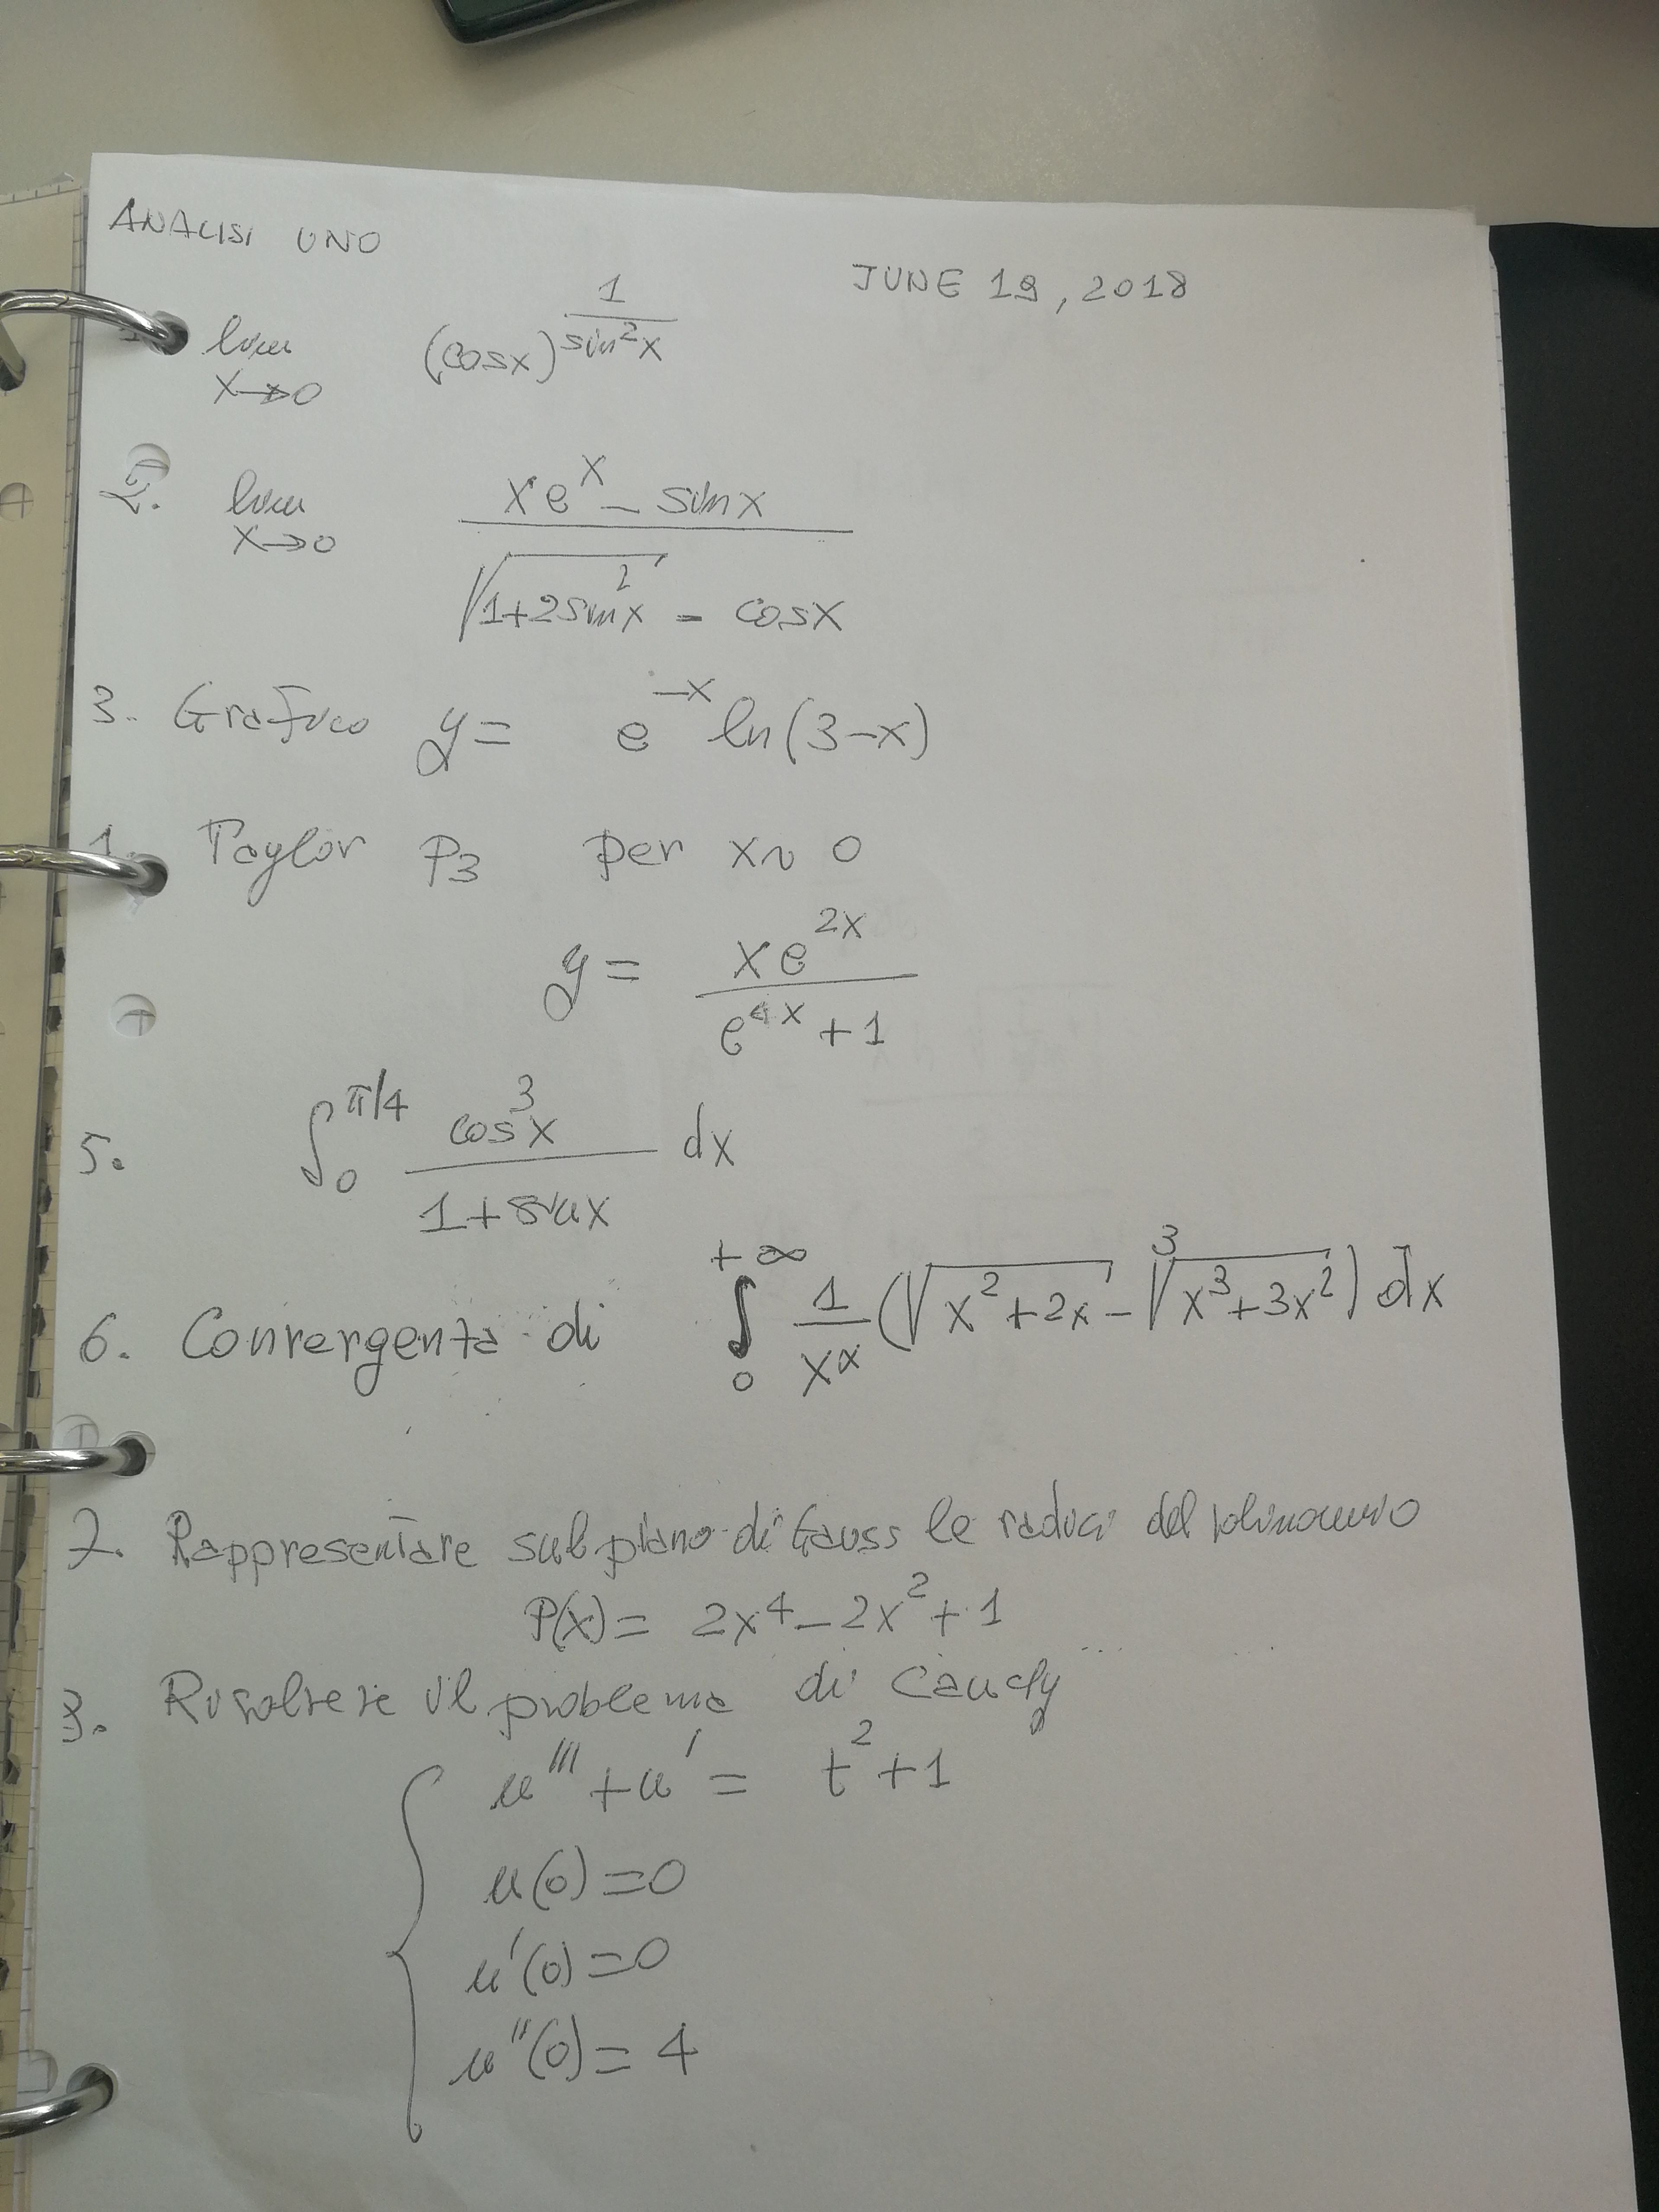 ANALISI UNO
JUNE 19, 2018
lim x→0 (cosx)^(1/sin²x)
2. lim x→0 (xe^x - sinx)/(√(1+2sin²x) - cosx)
3. Grafico y = e^-x ln(3-x)
Taylor P3 per x~0
y = xe^2x/(e^4x + 1)
5. ∫₀^π/4 cos³x/(1+sinx) dx
6. Convergenza di ∫₀^+∞ 1/x^α (√(x²+2x) - ∛(x³+3x²)) dx
7. Rappresentare sul piano di Gauss le radici del polinomio
P(x) = 2x⁴ - 2x² + 1
8. Risolvere il problema di Cauchy
u''' + u' = t² + 1
u(0) = 0
u'(0) = 0
u''(0) = 4